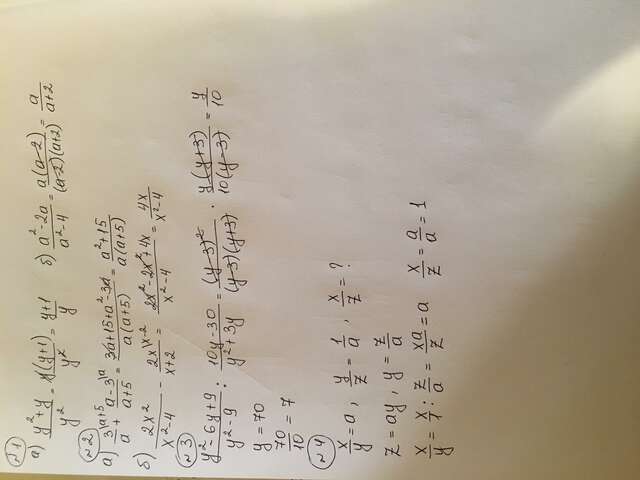 №1
а) (y²+y)/y² = y(y+1)/y² = (y+1)/y б) (a²-2a)/(a²-4) = a(a-2)/((a-2)(a+2)) = a/(a+2)
№2
а) 3\a+5/a + (a-3)\a/(a+5) = (3a+15+a²-3a)/(a(a+5)) = (a²+15)/(a(a+5))
б) 2x²/(x²-4) - 2x\x-2/(x+2) = (2x²-2x²+4x)/(x²-4) = 4x/(x²-4)
№3
(y²-6y+9)/(y²-9) : (10y-30)/(y²+3y) = (y-3)²/((y-3)(y+3)) · y(y+3)/(10(y-3)) = y/10
y=70
70/10 = 7
№4
x/y = a, y/z = 1/a, x/z = ?
z=ay, y = z/a
x/y = x/1 : z/a = xa/z = a x/z = a/a = 1